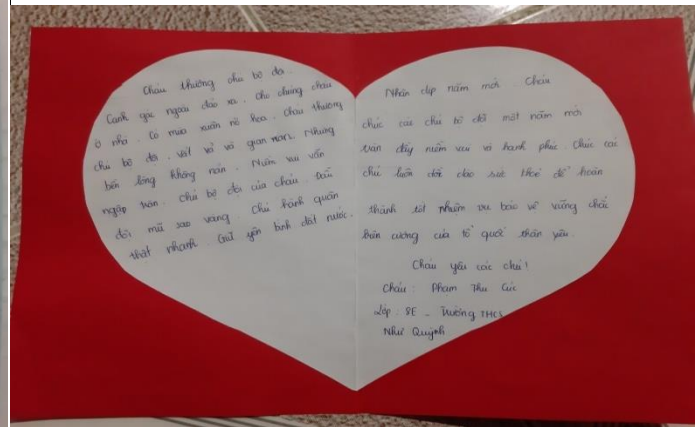 Cháu thương chú bộ đội.
Canh gác ngoài đảo xa. Cho chúng cháu
ở nhà. Có mùa xuân nở hoa. Cháu thương
chú bộ đội. Vất vả và gian nan. Nhưng
bền lòng không nản. Niềm vui vẫn
ngập tràn. Chú bộ đội của cháu.
đội mũ sao vàng. Chú hành quân
thật nhanh. Giữ yên bình đất nước.
Nhân dịp năm mới. Cháu
chúc các chú bộ đội một năm mới
tràn đầy niềm vui và hạnh phúc. Chúc các
chú luôn dồi dào sức khoẻ để hoàn
thành tốt nhiệm vụ bảo vệ vững chắc
biên cương của tổ quốc thân yêu.
Cháu yêu các chú!
Cháu: Phạm Thu Cúc
Lớp: 8E - Trường THCS
Như Quỳnh